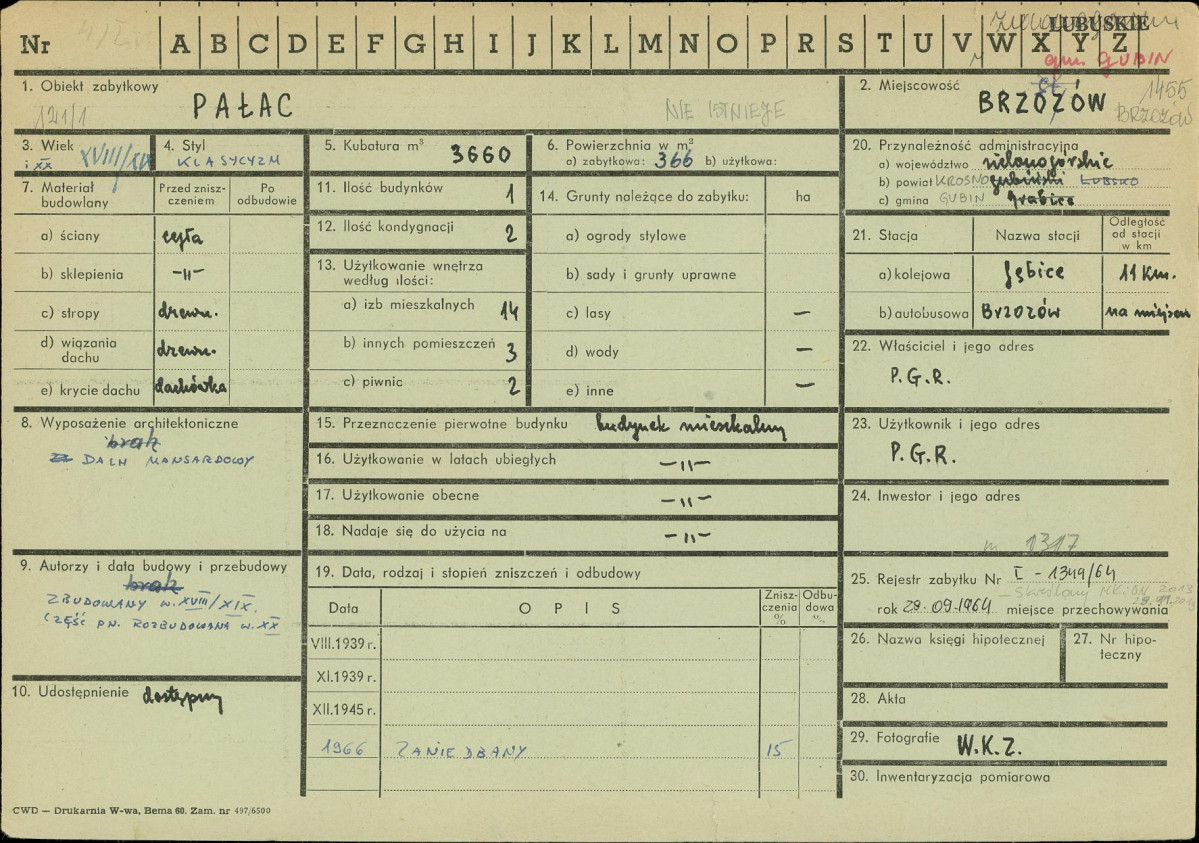 LUBUSKIE
Nr A B C D E F G H I J K L M N O P R S T U V W X Y Z
gm. GUBIN
1. Obiekt zabytkowy
PAŁAC
121/1
NIE ISTNIEJE
2. Miejscowość
BRZOZÓW
1455
BRZOZÓW
3. Wiek XVIII/XIX
i XX
4. Styl
KLASYCYZM
5. Kubatura m³ 3660
6. Powierzchnia w m²
a) zabytkowa: 366 b) użytkowa:
20. Przynależność administracyjna
a) województwo zielonogórskie
b) powiat KROSNO gubiński LUBSKO
c) gmina GUBIN Grabice
7. Materiał budowlany
Przed zniszczeniem
Po odbudowie
a) ściany cegła
b) sklepienia –"–
c) stropy drewn.
d) wiązania dachu drewn.
e) krycie dachu dachówka
11. Ilość budynków 1
12. Ilość kondygnacji 2
13. Użytkowanie wnętrza
według ilości:
a) izb mieszkalnych 14
b) innych pomieszczeń 3
c) piwnic 2
14. Grunty należące do zabytku: ha
a) ogrody stylowe
b) sady i grunty uprawne
c) lasy –
d) wody –
e) inne –
21. Stacja
Nazwa stacji
Odległość od stacji w km
a) kolejowa Jębice 11 km.
b) autobusowa Brzozów na miejscu
22. Właściciel i jego adres
P.G.R.
8. Wyposażenie architektoniczne
brak
DACH MANSARDOWY
15. Przeznaczenie pierwotne budynku budynek mieszkalny
16. Użytkowanie w latach ubiegłych –"–
17. Użytkowanie obecne –"–
18. Nadaje się do użycia na –"–
23. Użytkownik i jego adres
P.G.R.
24. Inwestor i jego adres
1317
9. Autorzy i data budowy i przebudowy
brak
ZBUDOWANY W. XVIII/XIX.
CZĘŚĆ PN. ROZBUDOWANA W. XX
10. Udostępnienie dostępny
19. Data, rodzaj i stopień zniszczeń i odbudowy
Data OPIS Zniszczenia % Odbudowa %
VIII.1939 r.
XI.1939 r.
XII.1945 r.
1966 ZANIEDBANY 15
25. Rejestr zabytku Nr I - 1349/64
rok 29.09.1964 miejsce przechowywania
26. Nazwa księgi hipotecznej
27. Nr hipoteczny
28. Akta
29. Fotografie W.K.Z.
30. Inwentaryzacja pomiarowa
CWD — Drukarnia W-wa, Bema 60. Zam. nr 497/6500